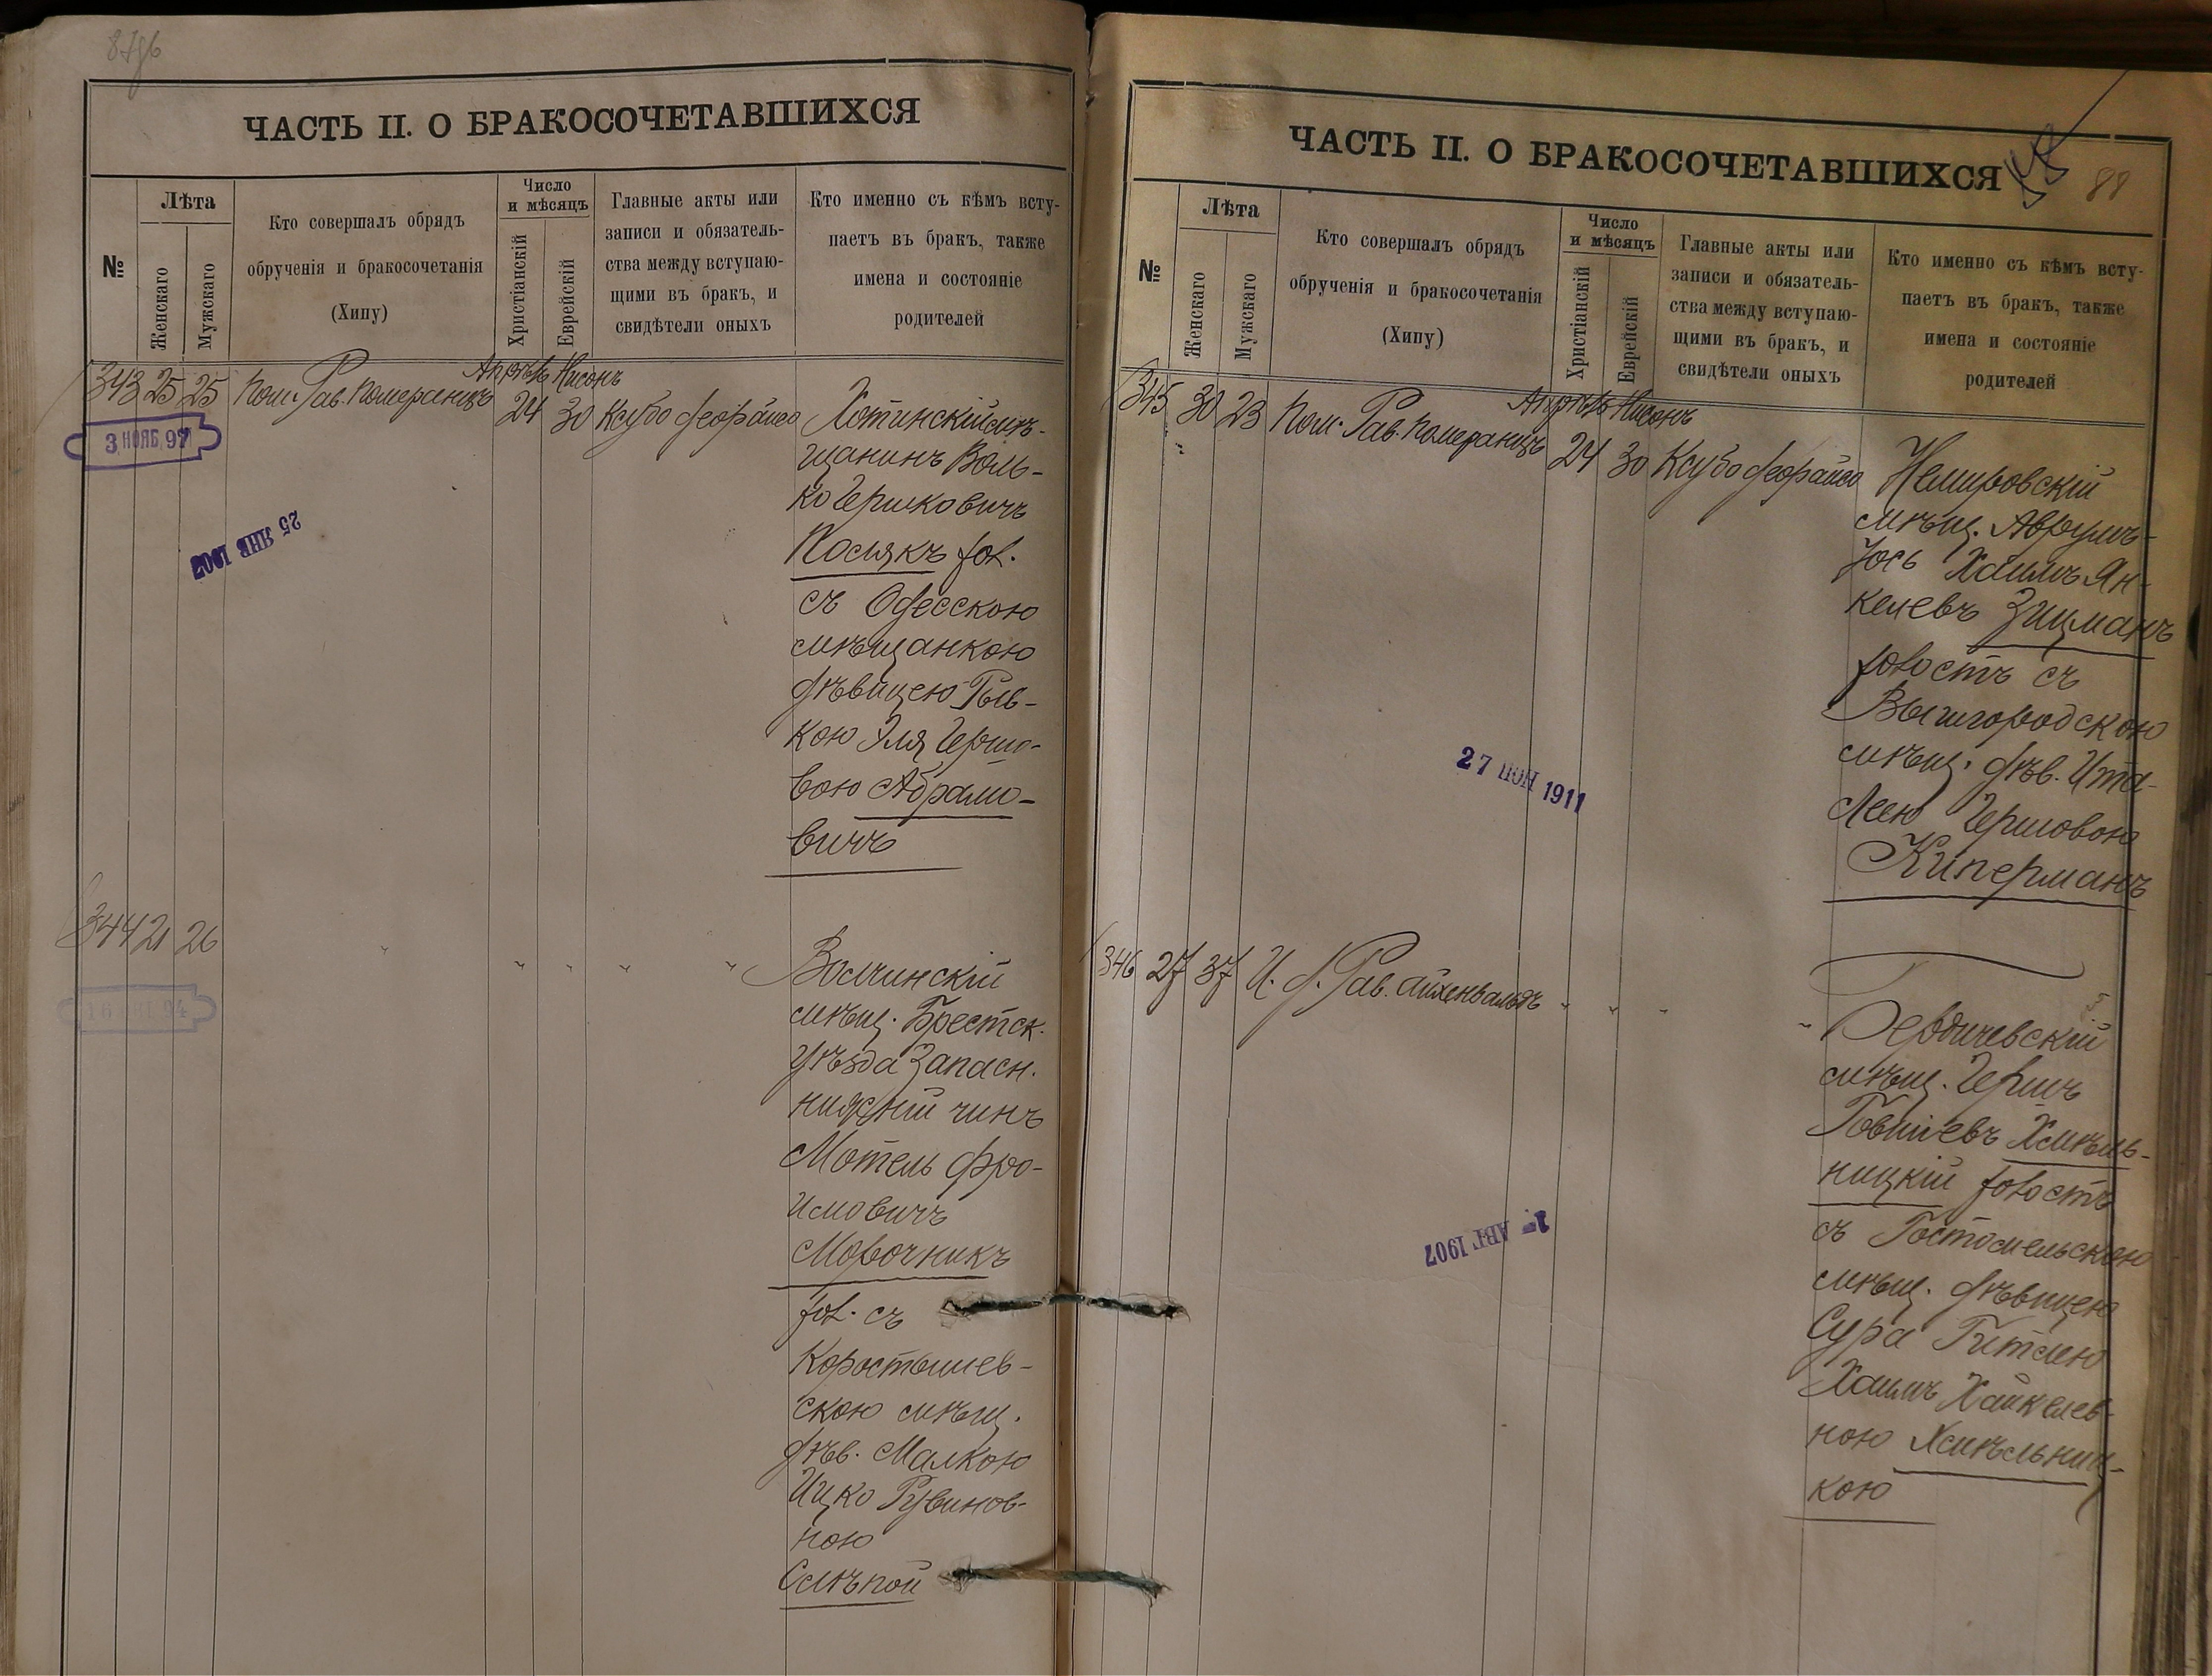 ЧАСТЬ II. О БРАКОСОЧЕТАВШИХСЯ
№
Лѣта
Женскаго
Мужскаго
Кто совершалъ обрядъ
обрученія и бракосочетанія
(Хипу)
Число
и мѣсяцъ
Христіанскій
Еврейскій
Главные акты или
записи и обязатель-
ства между вступаю-
щими въ бракъ, и
свидѣтели оныхъ
Кто именно съ кѣмъ всту-
паетъ въ бракъ, также
имена и состояніе
родителей
343 25 25 Пом. Рав. Померанцъ Апрѣль 24 Нисонъ 30
3 НОЯБ. 97
25 ЯНВ 1902
Хотинскій мѣ-
щанинъ Воль-
ко Гершковичъ
Посякъ хол.
съ Одесскою
мѣщанкою
дѣвицею Рыв-
кою Эля Гершо-
вою Абрамо-
вичъ
344 21 26 " " " " "
Волчинскій
мѣщ. Брестск.
уѣзда запасн.
нижній чинъ
Мотель Фро-
имовичъ
Мовочникъ
хол. съ
Коростышев-
скою мѣщ.
дѣв. Малкою
Ицко Рувинов-
ною
Слѣпой
ЧАСТЬ II. О БРАКОСОЧЕТАВШИХСЯ
88
№
Лѣта
Женскаго
Мужскаго
Кто совершалъ обрядъ
обрученія и бракосочетанія
(Хипу)
Число
и мѣсяцъ
Христіанскій
Еврейскій
Главные акты или
записи и обязатель-
ства между вступаю-
щими въ бракъ, и
свидѣтели оныхъ
Кто именно съ кѣмъ всту-
паетъ въ бракъ, также
имена и состояніе
родителей
345 30 23 Пом. Рав. Померанцъ Апрѣль 24 Нисонъ 30
27 ІЮН 1911
Немировскій
мѣщ. Аврумъ-
Іось Хаимъ Ян-
келевъ Зицманъ
холостъ съ
Вышгородскою
мѣщ. дѣв. Ита-
Леею Гершовою
Киперманъ
346 27 37 И. д. Рав. Айхенвальдъ " " " "
1 - АВГ 1907
Бердичевскій
мѣщ. Гершъ
Товшіевъ Хмѣль-
ницкій холостъ
съ Гостомельскою
мѣщ. дѣвицею
Сура Гитлею
Хаимъ Хайкелев-
ною Хмѣльниц-
кою